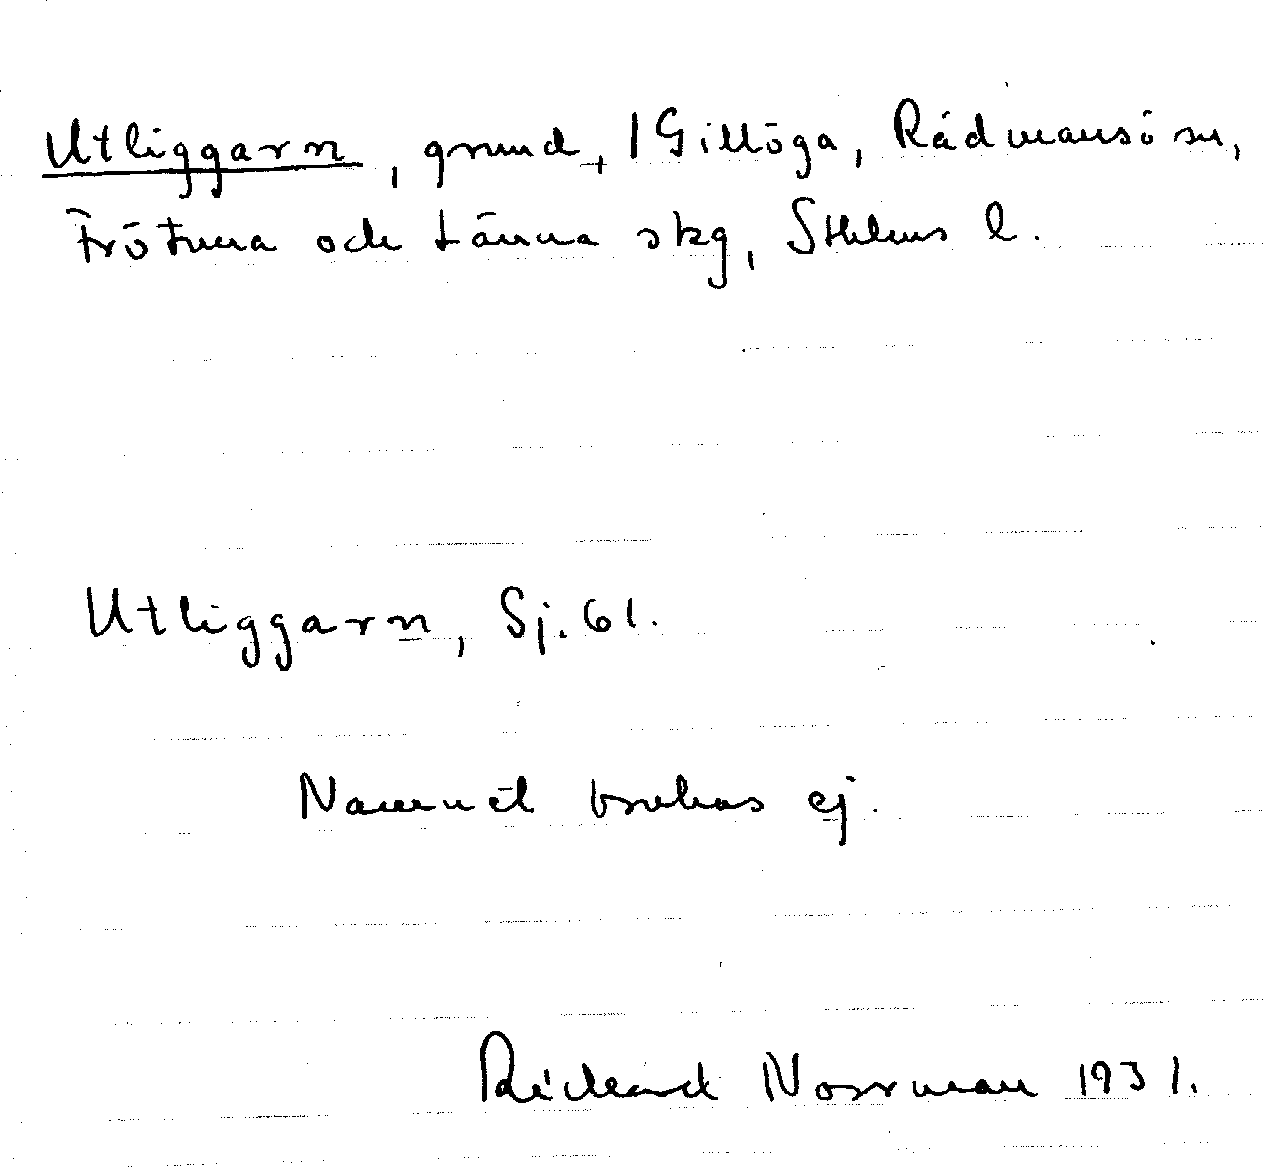 Utligg​arn, grund, i Gillöga, Rådmansö sn,
Frötuna och Länna skg, Sthlms l.
Utliggarn, Sj. 61.
Namnet brukas ej.
Rickard Norrman 1931.